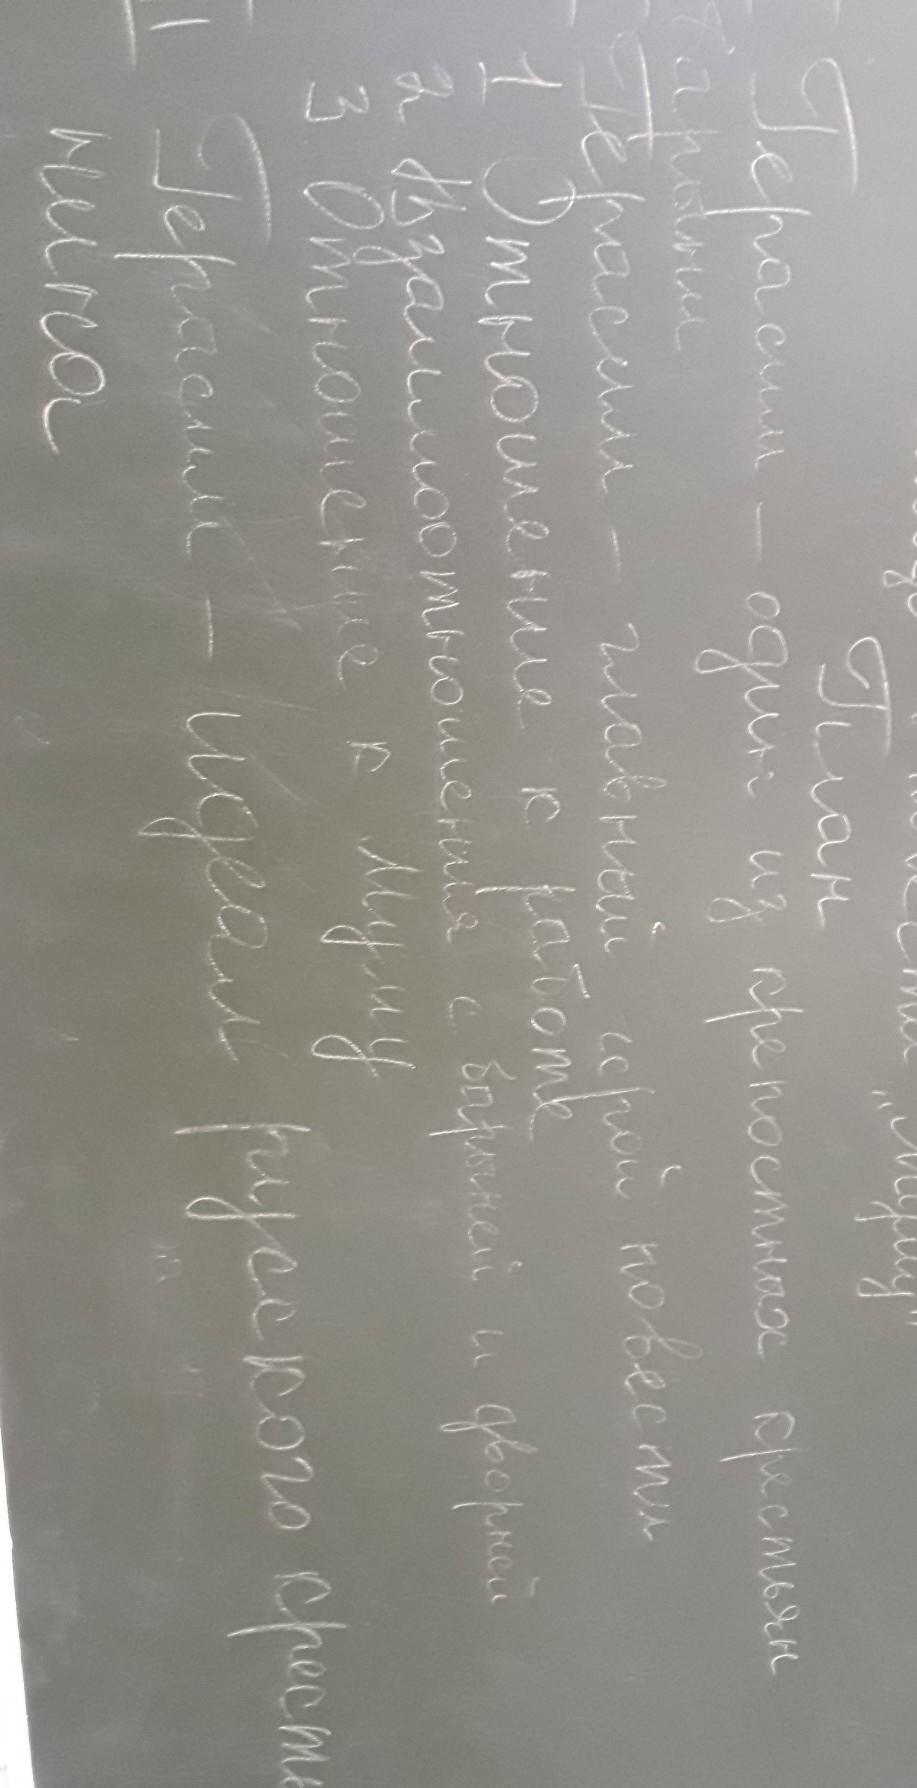 повести "Муму"
План
Герасим - один из крепостных крестьян
барыни
Герасим - главный герой повести
1 Отношение к работе
2 Взаимоотношения с барыней и дворней
3 Отношение к Муму
II Герасим - идеал руского кресть
нина